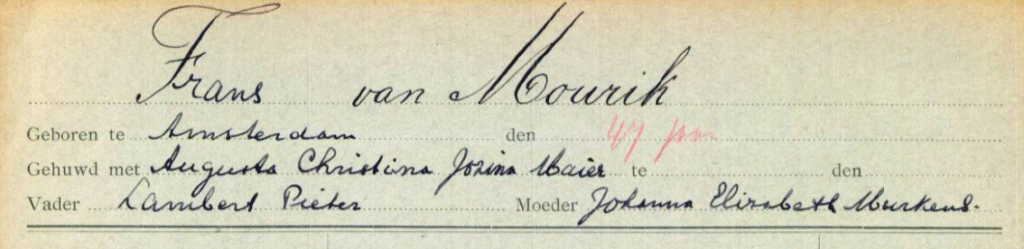 Frans van Mourik
Geboren te Amsterdam den 47 jaar
Gehuwd met Augusta Christina Jozina Maier te den
Vader Lambert Pieter Moeder Johanna Elizabeth Murkens.